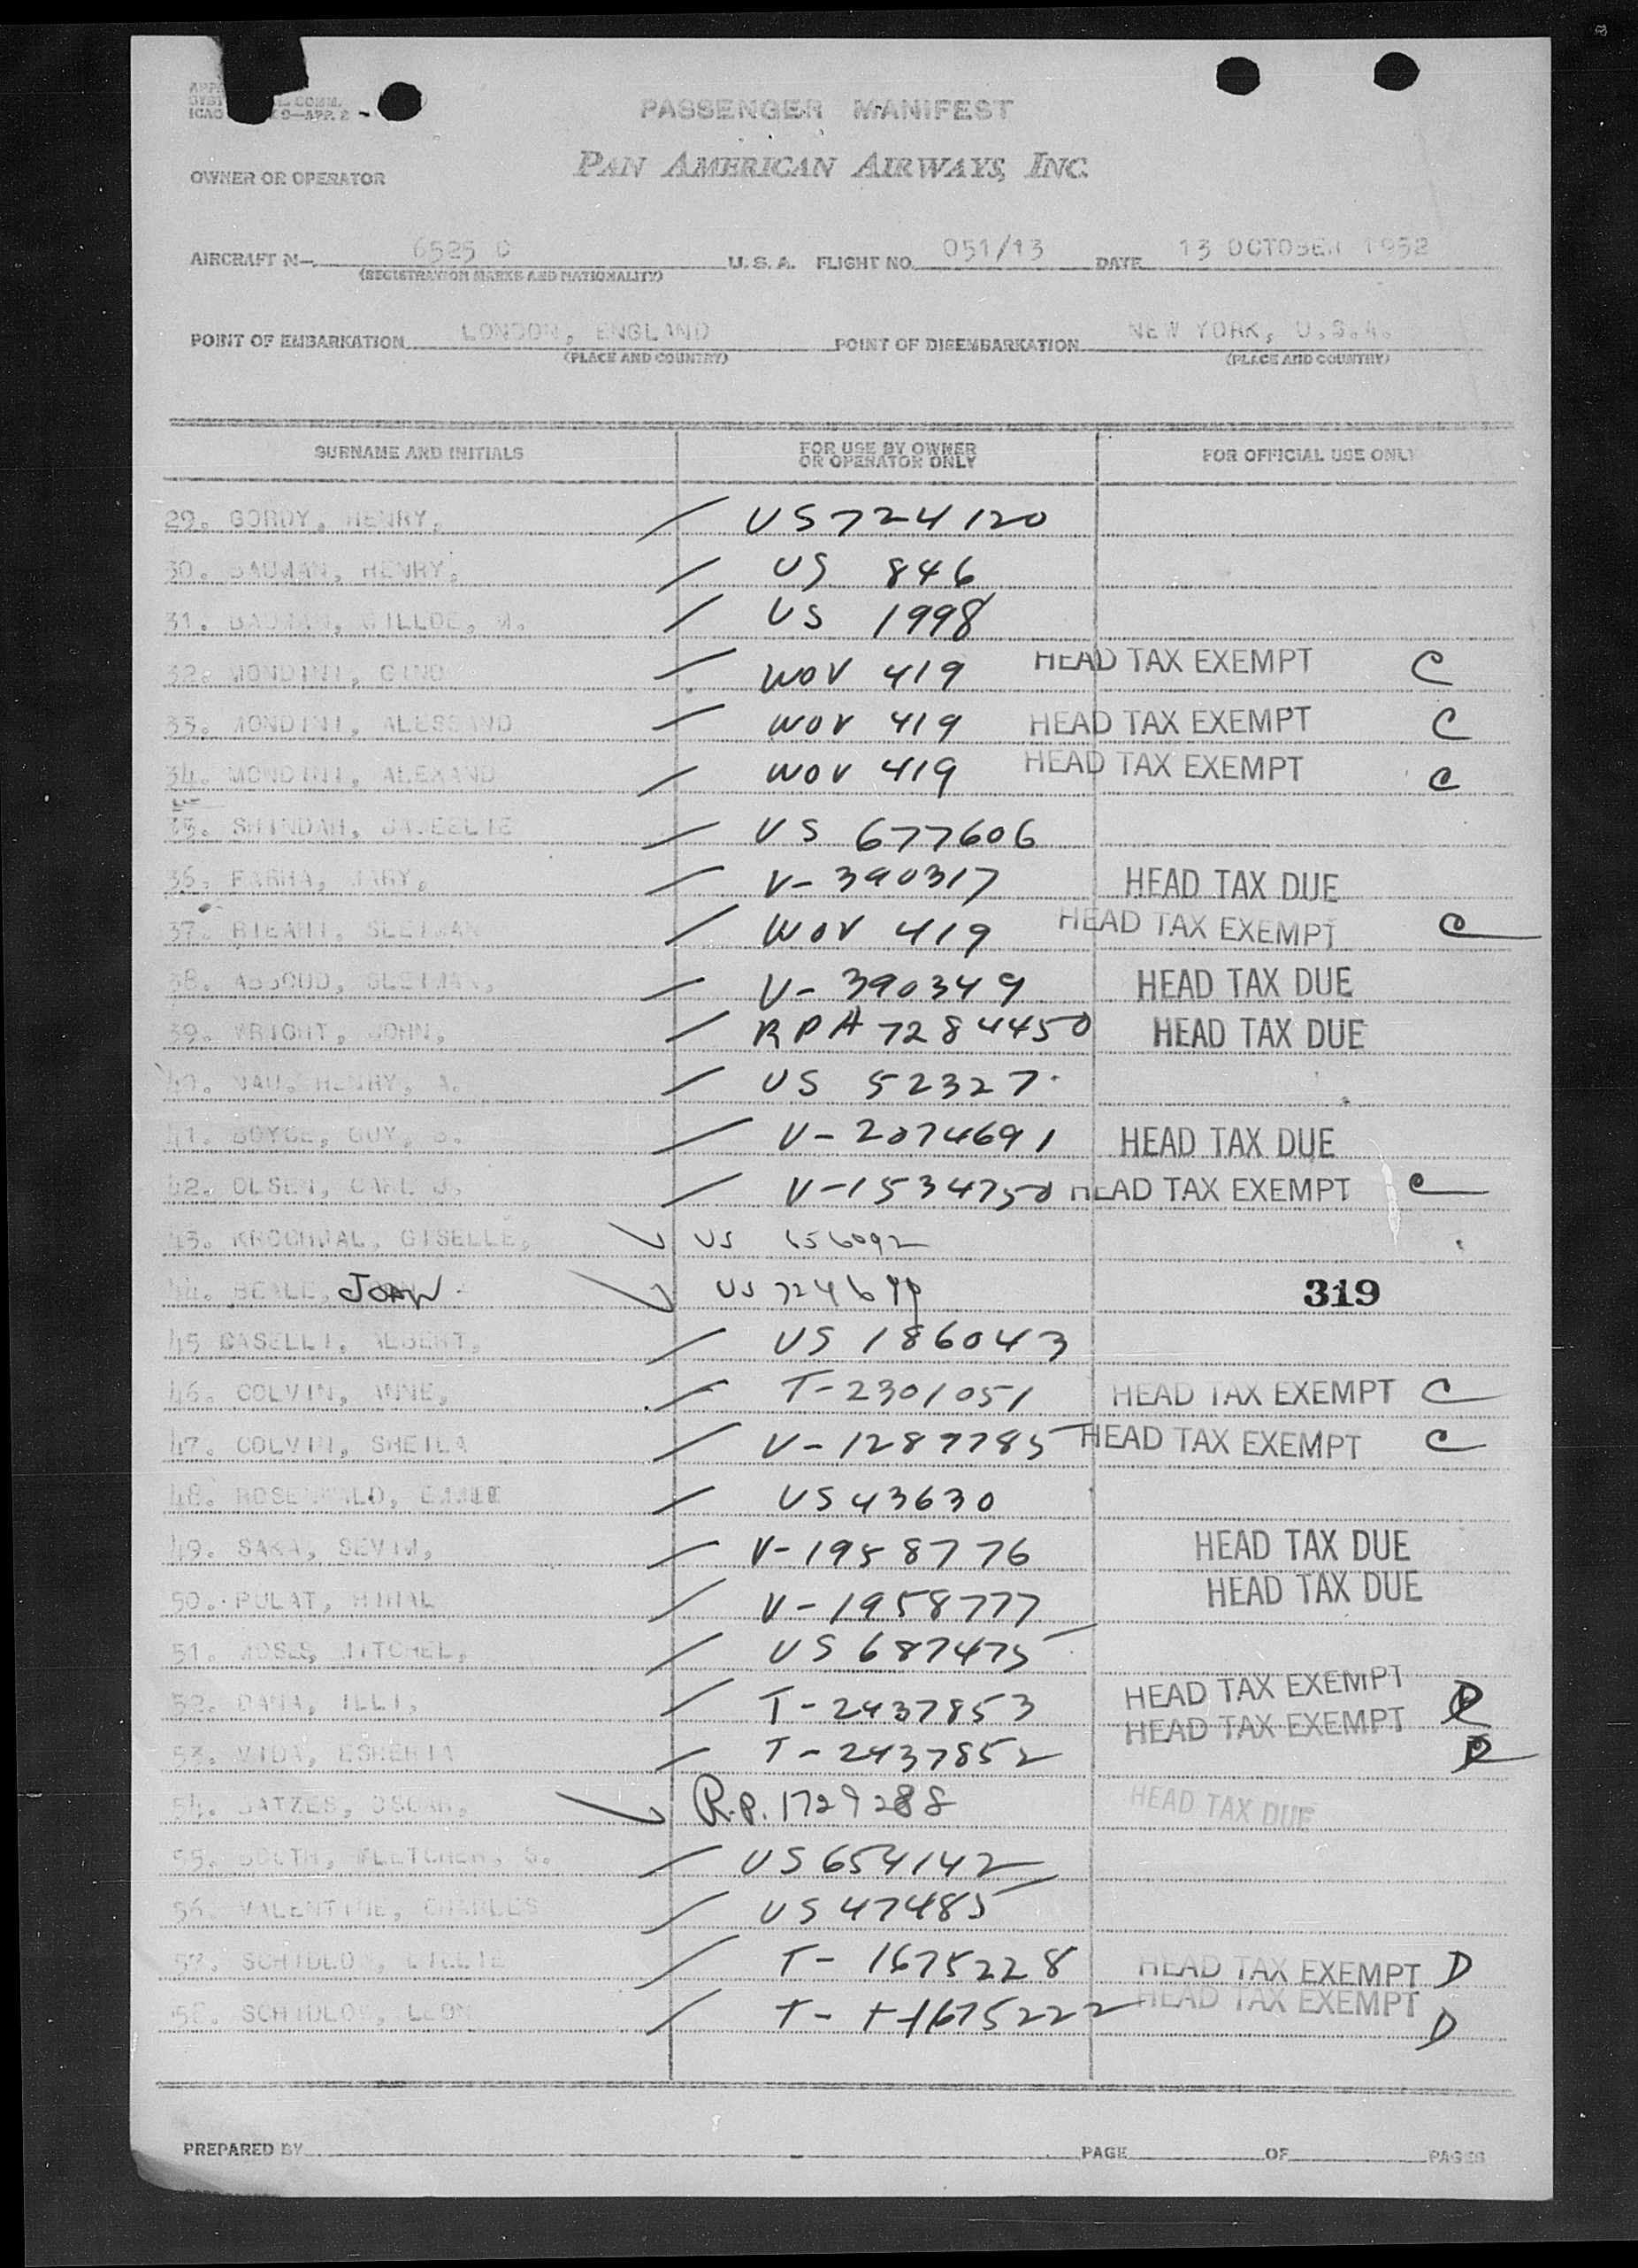 PASSENGER MANIFEST
ICAO
OWNER OR OPERATOR PAN AMERICAN AIRWAYS, INC.
AIRCRAFT N— 6525 C U. S. A. FLIGHT NO. 051/13 DATE 13 OCTOBER 1952
(REGISTRATION MARKS AND NATIONALITY)
POINT OF EMBARKATION LONDON, ENGLAND POINT OF DISEMBARKATION NEW YORK, U.S.A.
(PLACE AND COUNTRY) (PLACE AND COUNTRY)
SURNAME AND INITIALS FOR USE BY OWNER OR OPERATOR ONLY FOR OFFICIAL USE ONLY
29. GORDY, HENRY, US 724120
30. BAUMAN, HENRY, US 846
31. BAUMAN, M. US 1998
32. MONDINI, GINO WOV 419 HEAD TAX EXEMPT C
33. MONDINI, WOV 419 HEAD TAX EXEMPT C
34. MONDINI, ALEXAND WOV 419 HEAD TAX EXEMPT C
35. SHINDAH, US 677606
36. FARHA, MARY, V-390317 HEAD TAX DUE
37. SLEIMAN WOV 419 HEAD TAX EXEMPT C
38. SLEIMAN, V-390349 HEAD TAX DUE
39. WRIGHT, JOHN, RPA 7284450 HEAD TAX DUE
40. NAU, HENRY, A. US 52327
41. BOYCE, GUY, V-2074691 HEAD TAX DUE
42. OLSEN, CARL J. V-1534750 HEAD TAX EXEMPT C
43. KROCHMAL, GISELLE, US 656092
44. BEALE, JOAN US
319
45 CASELLI, ALBERT, US 186043
46. COLVIN, ANNE, T-2301051 HEAD TAX EXEMPT C
47. COLVIN, SHEILA V-1287785 HEAD TAX EXEMPT C
48. ROSENWALD, US 43630
49. SAKA, SEVIM, V-1958776 HEAD TAX DUE
50. PULAT, V-1958777 HEAD TAX DUE
51. MOSES, MITCHEL, US 687475
52. DANA, ILLI, T-2437853 HEAD TAX EXEMPT D
53. VIDA, T-2437852 HEAD TAX EXEMPT D
54. OSCAR, R.P. 1729288 HEAD TAX DUE
55. FLETCHER, S. US 654142
56. VALENTINE, CHARLES US 47485
57. SCHIDLOW, LILLIE T- 1675228 HEAD TAX EXEMPT D
58. SCHIDLOW, LEON T- T-1675222 HEAD TAX EXEMPT D
PREPARED BY PAGE OF PAGES